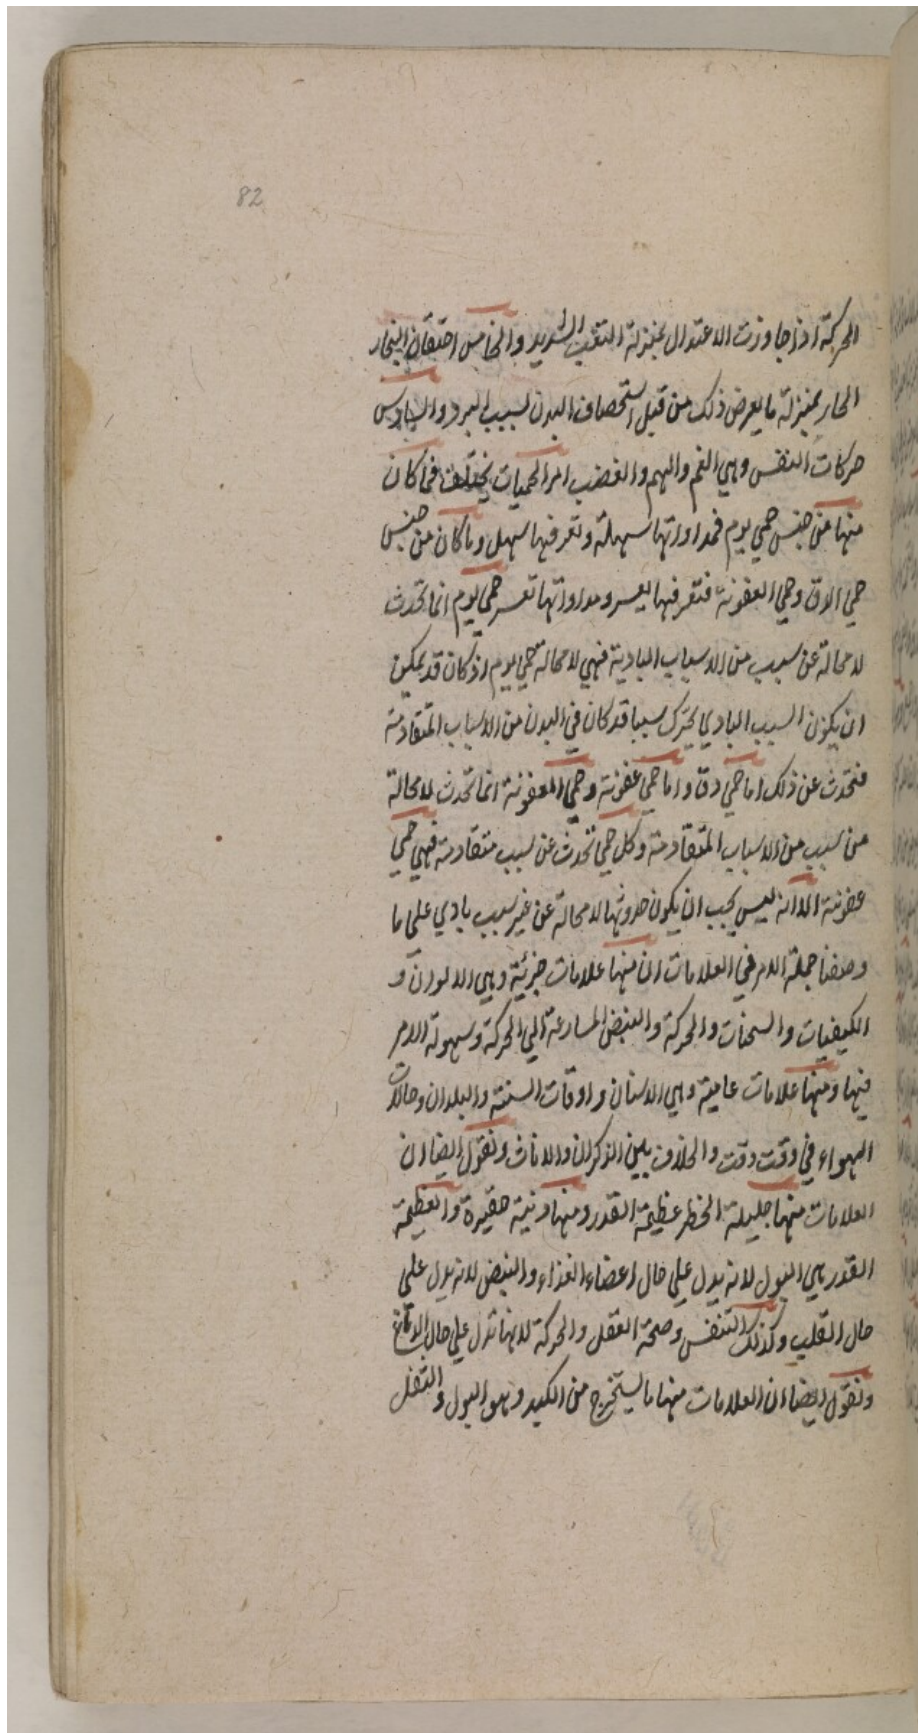 82
الحركة اذا جاوزت الاعتدال بمنزلة التعب الشديد والخامس احتقان البخار
الحار بمنزلة ما يعرض ذلك من قبل استحصاف البدن لسبب البرد والسادس
حركات النفس وهي الغم والهم والغضب امر الحميات يختلف فما كان
منها من جنس حمي يوم فمداواتها سهلة وتعرفها سهل وما كان من جنس
حمي الدق وحمي العفونة فتعرفها يعسر ومداواتها تعسر حمي يوم انما تحدث
لا محالة عن سبب من الاسباب البادية فهي لا محالة حمي يوم اذ كان قد يمكن
ان يكون السبب البادي يحرك سببا قد كان في البدن من الاسباب المتقادمة
فتحدث عن ذلك اما حمي دق واما حمي عفونة وحمي العفونة انما تحدث لا محالة
من سبب من الاسباب المتقادمة وكل حمي تحدث عن سبب متقادمة فهي حمي
عفونة الا انه ليس يجب ان يكون حدوثها لا محالة عن غير سبب بادي علي ما
وصفنا جملة الامر في العلامات ان منها علامات جزئية وهي الالوان و
الكيفيات والسحنات والحركة والنبض المسارعة الي الحركة وسهولة الامر
فيها ومنها علامات عامية وهي الاسنان واوقات السنة والبلدان وحالات
الهواء في وقت وقت والخلاف بين الذكران والاناث ونقول ايضا ان
العلامات منها جليلة الخطر عظيمة القدر ومنها دنية حقيرة والعظيمة
القدر هي البول لانه يدل علي حال اعضاء الغذاء والنبض لانه يدل علي
حال القلب وكذلك التنفس وصحة العقل والحركة لانها تدل علي حال الدماغ
ونقول ايضا ان العلامات منها ما يستخرج من الكبد وهو البول و الثفل